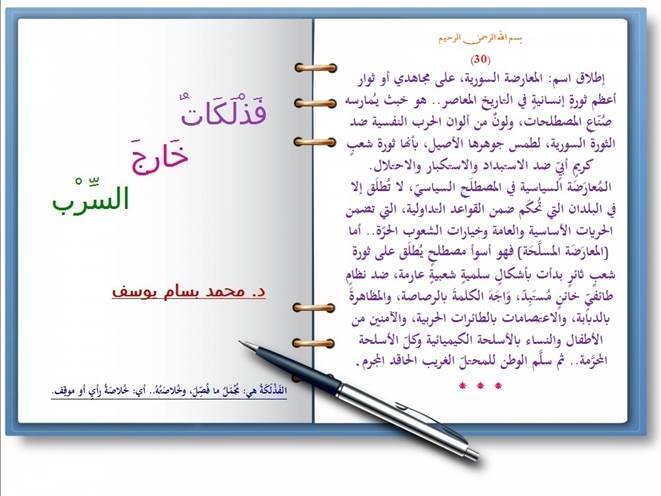 بسم الله الرحمن الرحيم
(30)
إطلاق اسم: المعارضة السورية، على مجاهدي أو ثوار
أعظم ثورةٍ إنسانيةٍ في التاريخ المعاصر.. هو خبث يُمارسه
صُنّاع المصطلحات، ولونٌ من ألوان الحرب النفسية ضد
الثورة السورية، لطمس جوهرها الأصيل، بأنها ثورة شعبٍ
كريمٍ أبيّ ضد الاستبداد والاستكبار والاحتلال.
المُعارَضَة السياسية في المصطلَح السياسيّ، لا تُطلَق إلا
في البلدان التي تُحكَم ضمن القواعد التداولية، التي تضمن
الحريات الأساسية والعامة وخيارات الشعوب الحرّة.. أما
(المعارَضَة المسلَّحَة) فهو أسوأ مصطلحٍ يُطلَق على ثورة
شعبٍ ثائرٍ بدأت بأشكالٍ سلميةٍ شعبيةٍ عارمة، ضد نظامٍ
طائفيّ خائنٍ مُستَبِدّ، وَاجَهَ الكلمةَ بالرصاصة، والمظاهرةَ
بالدبابة، والاعتصامات بالطائرات الحربية، والآمنين من
الأطفال والنساء بالأسلحة الكيميائية وكلّ الأسلحة
المحرَّمة.. ثم سلَّم الوطن للمحتلّ الغريب الحاقد المجرم.
* * *
فَذْلَكَاتٌ
خَارِجَ
السِّرْب
د. محمد بسام يوسف
الفَذْلَكَةُ هي: مُجْمَلُ ما فُصِّلَ، وخُلاصَتُهُ.. أي: خُلاصَةُ رأيٍ أو موقِف.